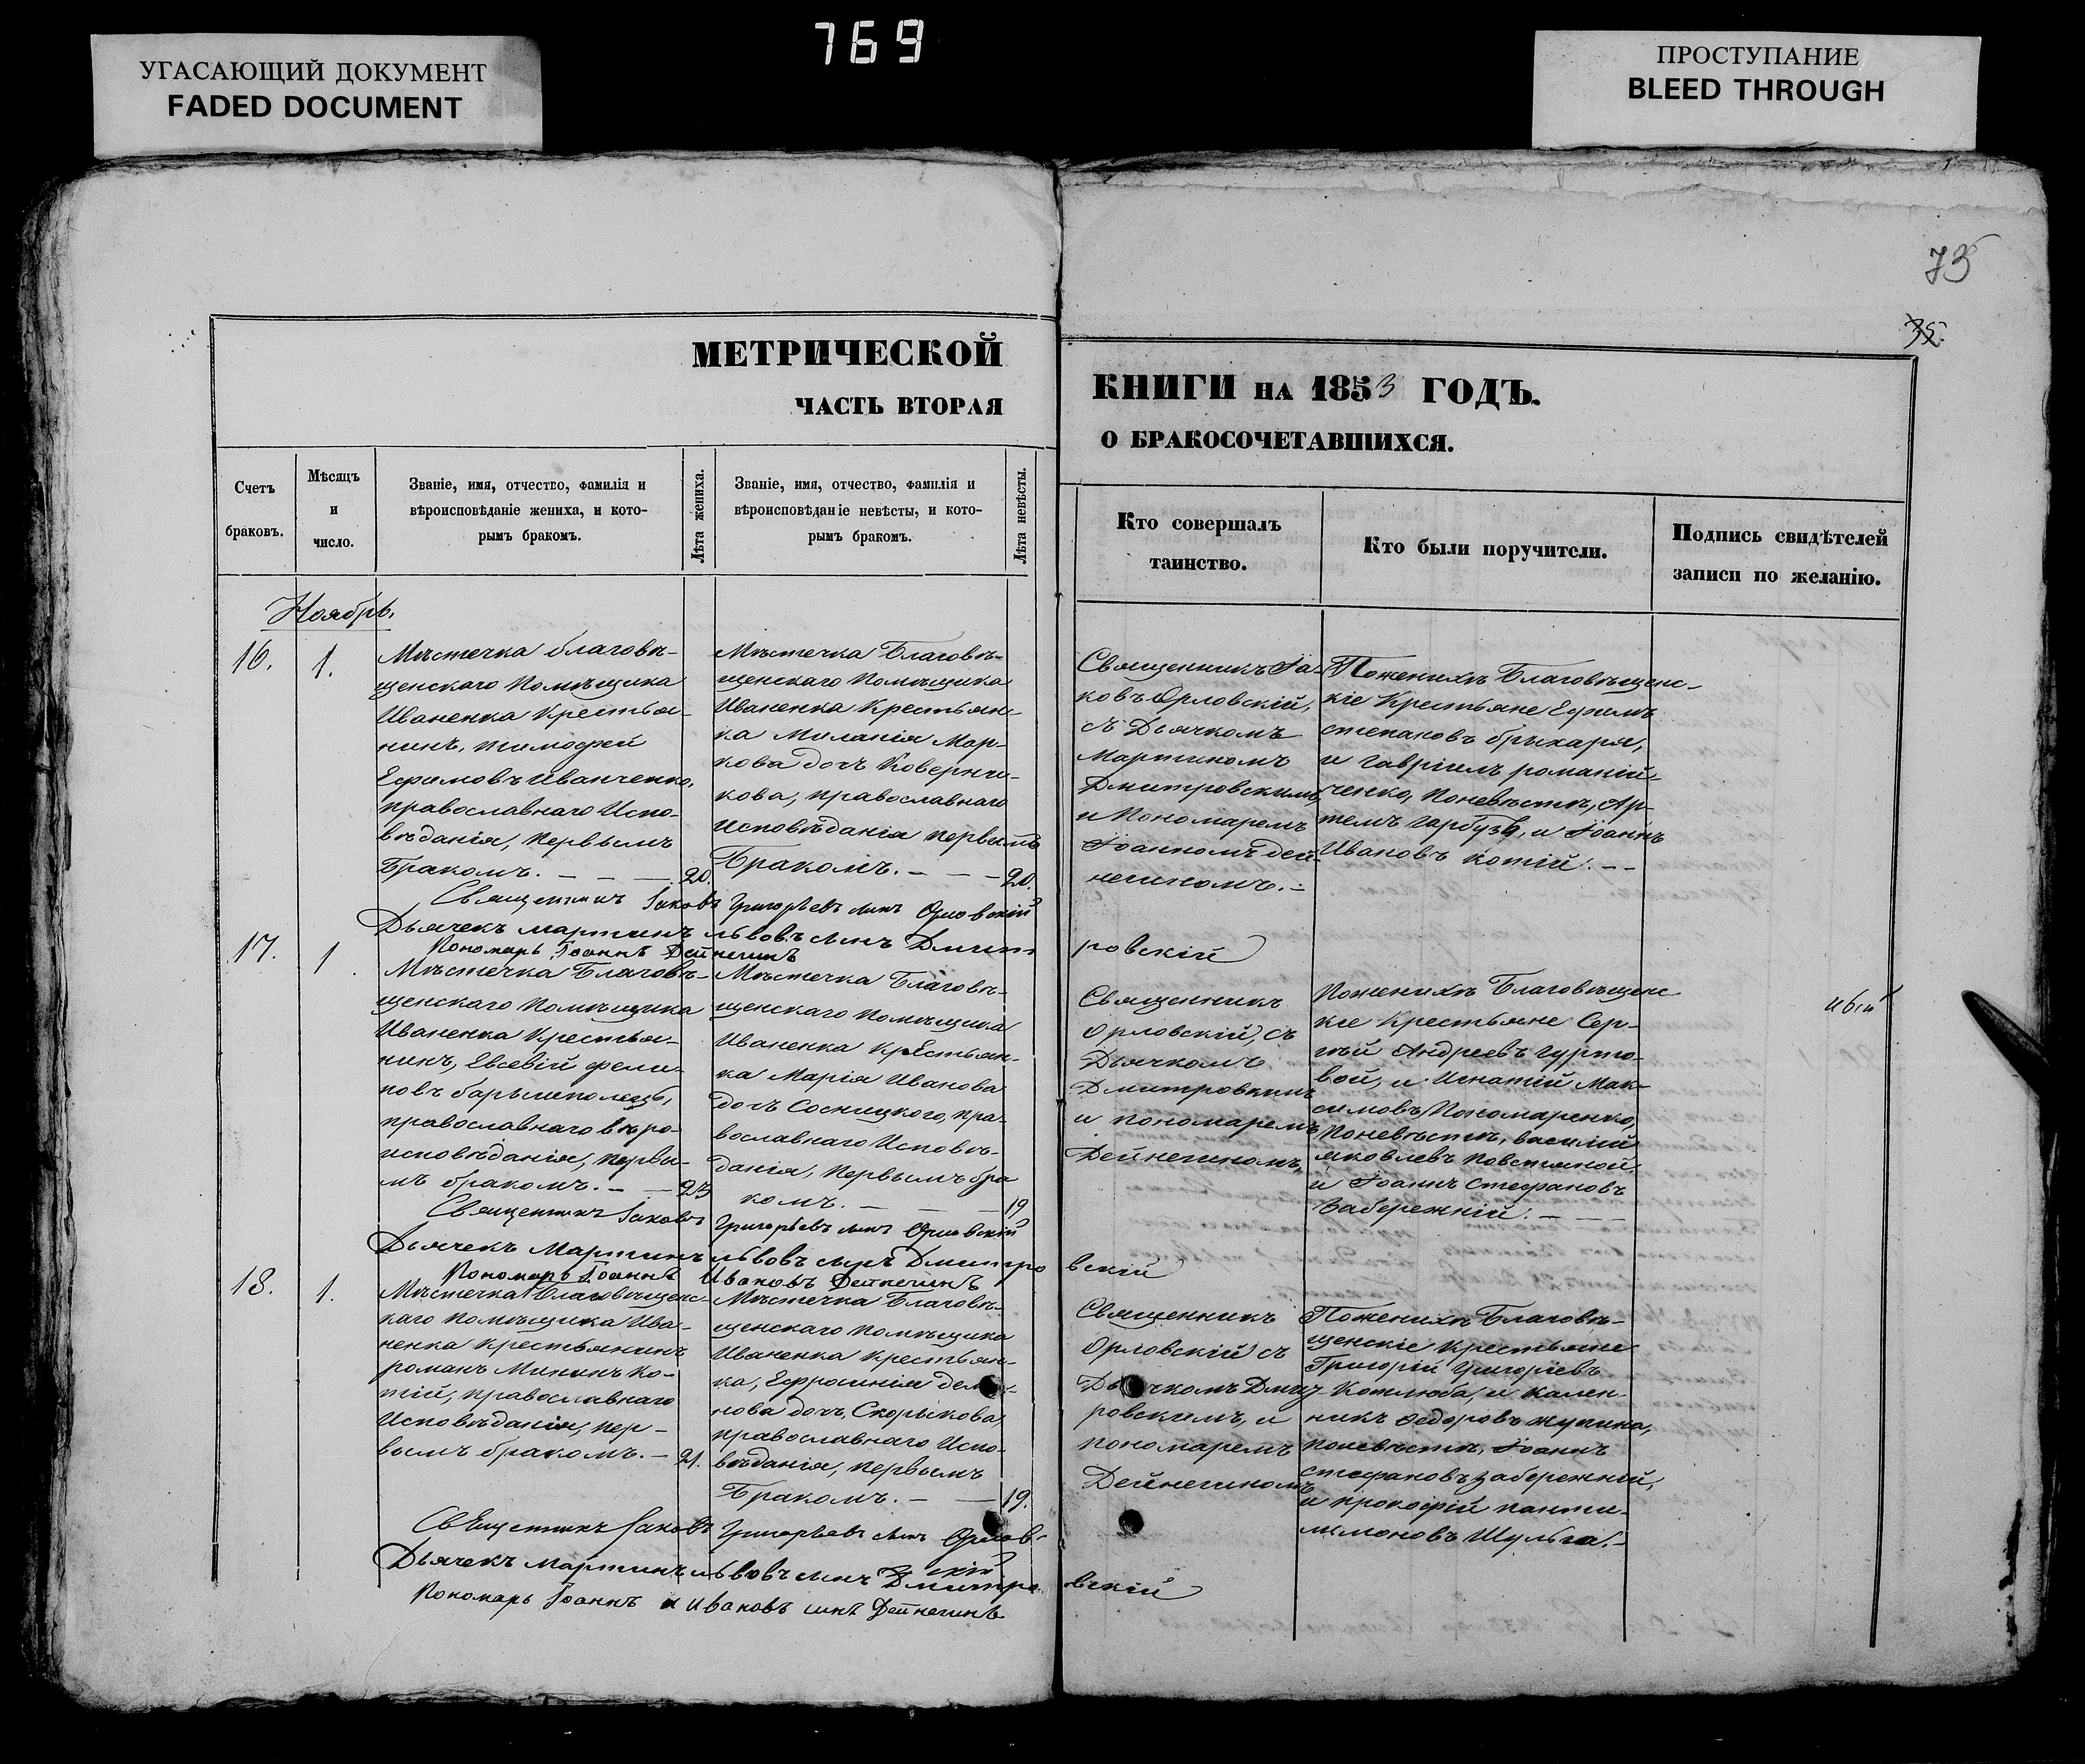 УГАСАЮЩИЙ ДОКУМЕНТ
FADED DOCUMENT
769
ПРОСТУПАНИЕ
BLEED THROUGH
73
35.
МЕТРИЧЕСКОЙ
ЧАСТЬ ВТОРАЯ
Счетъ
браковъ.
Мѣсяцъ
и
число.
Званіе, имя, отчество, фамилія и
вѣроисповѣданіе жениха, и кото-
рымъ бракомъ.
Лѣта жениха.
Званіе, имя, отчество, фамилія и
вѣроисповѣданіе невѣсты, и кото-
рымъ бракомъ.
Лѣта невѣсты.
КНИГИ НА 1853 ГОДЪ.
О БРАКОСОЧЕТАВШИХСЯ.
Кто совершалъ
таинство.
Кто были поручители.
Подпись свидѣтелей
записи по желанію.
Ноябрь.
16.
1.
Мѣстечка благовѣ-
щенскаго Помѣщика
Иваненка Крестья-
нинъ, тимофей
Ефимовъ Иванченко,
православнаго Испо-
вѣданія, Первымъ
Бракомъ. — — — 20.
Мѣстечка Благовѣ-
щенскаго Помѣщика
Иваненка Крестьян-
ка Меланія Мар-
кова дочь Коверни-
кова, православнаго
исповѣданія первымъ
Бракомъ. — — — 20.
Священникъ Іа-
ковъ Орловскій,
съ Дьячкомъ
Мартиномъ
Дмитровскимъ
и Пономаремъ
Іоанномъ Дей-
негиномъ.—
Поженихѣ Благовѣщенс-
кіе Крестьяне Ефимъ
степановъ брыкаря,
и гавріилъ романій-
ченко, Поневѣстѣ, Ар-
темъ гарбузъ, и Іоаннъ
Ивановъ котій. — —
Священникъ Іаковъ Григорьевъ сынъ Орловскій
Дьячекъ Мартинъ львовъ сынъ Дмитровскій
Пономарь Іоаннъ Дейнегинъ
17.
1.
Мѣстечка Благовѣ-
щенскаго Помѣщика
Иваненка Крестья-
нинъ, Евсевій фили-
повъ барышполецъ,
православнаго вѣро-
исповѣданія, первы-
мъ бракомъ. — — 23
Мѣстечка Благовѣ-
щенскаго Помѣщика
Иваненка Крестьян-
ка Марія Иванова
дочь Сосницкого, пра-
вославнаго Исповѣ-
данія, Первымъ бра
комъ. — — — 19
Священникъ
Орловскій, съ
Дьячкомъ
Дмитровскимъ
и пономаремъ
Дейнегиномъ,
Поженихѣ Благовѣщенс
кіе Крестьяне Сер-
гѣй Андреевъ гурто-
вой, и Игнатій Мак-
симовъ Пономаренко,
Поневѣстѣ, василій
яковлевъ повстяной,
и Іоаннъ Стефановъ
Забережній. — — —
Священникъ Іаковъ Григорьевъ сынъ Орловскій
Дьячекъ Мартинъ львовъ сынъ Дмитровскій
Пономарь Іоаннъ Ивановъ Дейнегинъ
18.
1.
Мѣстечка Благовѣщенс-
каго Помѣщика Ива-
ненка Крестьянинъ
романъ Мининъ Ко-
тій, православнаго
Исповѣданія, пер-
вымъ бракомъ. — 21.
Мѣстечка Благовѣ-
щенскаго Помѣщика
Иваненка Крестьян-
ка, Ефросинія
нова дочь, Скорыкова,
православнаго Испо-
вѣданія, первымъ
Бракомъ. — — 19.
Священникъ
Орловскій съ
Дьячкомъ Дмит-
ровскимъ, и
пономаремъ
Дейнегиномъ
Поженихѣ Благовѣ-
щенскіе Крестьяне
Григорій Григоріевъ
Котлюба, и кален-
никъ федоровъ жупина,
поневѣстѣ, Іоаннъ
стефановъ забережній,
и прокофій панти-
лимоновъ Шульга.—
Священникъ Іаковъ Григорьевъ сынъ Орлов-
скій
Дьячекъ Мартинъ львовъ сынъ Дмитровскій
Пономарь Іоаннъ Ивановъ сынъ Дейнегинъ